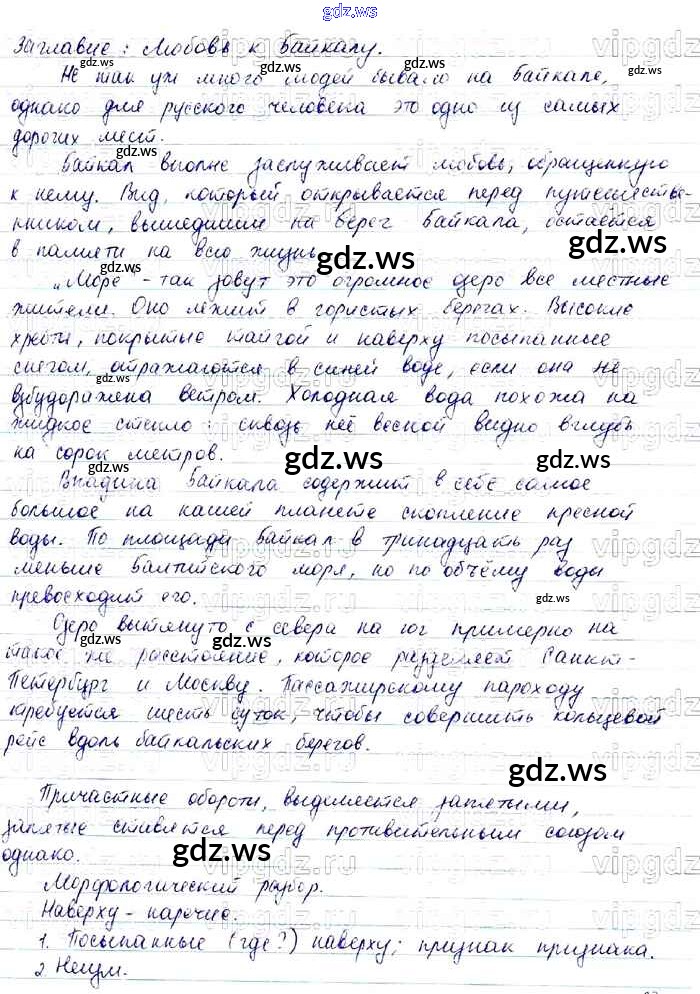 gdz.ws
Заглавие: Любовь к Байкалу.
Не так уж много людей бывало на Байкале,
однако для русского человека это одно из самых
дорогих мест.
Байкал вполне заслуживает любовь, обращённую
к нему. Вид, который открывается перед путешеств-
нником, вышедшим на берег Байкала, остаётся
в памяти на всю жизнь.
„Море" - так зовут это огромное озеро все местные
жители. Оно лежит в гористых берегах. Высокие
хребты, покрытые тайгой и наверху посыпанные
снегом, отражаются в синей воде, если она не
взбудоражена ветром. Холодная вода похожа на
жидкое стекло: сквозь неё весной видно вглубь
на сорок метров.
Впадина Байкала содержит в себе самое
большое на нашей планете скопление пресной
воды. По площади Байкал в тринадцать раз
меньше Балтийского моря, но по объёму воды
превосходит его.
Озеро вытянуто с севера на юг примерно на
такое же расстояние, которое разделяет Санкт-
Петербург и Москву. Пассажирскому пароходу
требуется шесть суток, чтобы совершить кольцевой
рейс вдоль байкальских берегов.
Причастные обороты, выделяется запятыми,
запятые ставятся перед противительным союзом
однако.
Морфологический разбор.
Наверху - наречие.
1. Посыпанные (где?) наверху; признак признака.
2. Неизм.